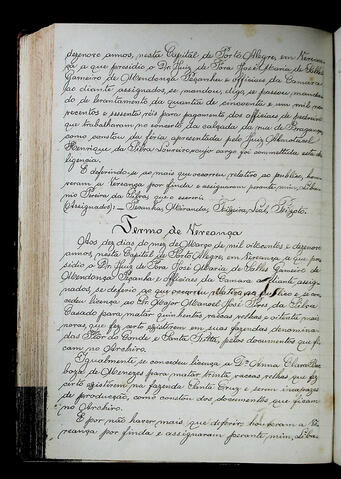 dezenove annos, nesta Capital de Porto Alegre, em Verean-
ça a que presidio o Dr. Juiz de Fora José Maria de Salles
Gameiro de Mendonça Peçanha e officiaes da Camara
ao diante assignados, se mandou, digo, se passou, manda-
do de levantamento da quantia de cincoenta e um mil no-
vecentos e sessenta réis para pagamento dos officiaes de pedreiro
que trabalharam no concerto da calçada da rua de Bragança,
como constou da feria apresentada pelo Juiz Almotacel
Henrique da Silva Loureiro a cujo cargo foi committida esta di-
ligencia.
E deferindo-se ao mais que occorreu relativo ao publico, hou-
veram a Vereança por finda e assignaram perante mim,
Pereira da que o escrevi
(Assignados): – Peçanha, Miranda, Teixeira, Leal, Peixoto.
Termo de Vereança
Aos dez dias do mez de Março de mil oitocentos e dezenove
annos, nesta Capital de Porto Alegre, em Vereança a que pre-
sidio o Dr. Juiz de Fora José Maria de Salles Gameiro de
Mendonça Peçanha e officiaes da Camara ao diante assig-
nados, se deferio ao que occorreu relativo ao publico e se con-
cedeu licença ao Sr. Major Manoel José Pires da Silva
Casado para matar quinhentas vaccas velhas e oitenta mais
novas que fez certo existirem em suas fazendas denomina-
das Flor do Conde e Santa pelos documentos que fi-
cam no Archivo.
Igualmente se concedeu licença a Da. Anna Clara Bar-
boza de Menezes para matar trinta vaccas velhas que fez
certo existirem na fazenda Santa Cruz e serem incapazes
de producção, como constou dos documentos que ficam
no Archivo.
E por não haver mais que deferir, houveram a Ve-
reança por finda e assignaram perante mim,